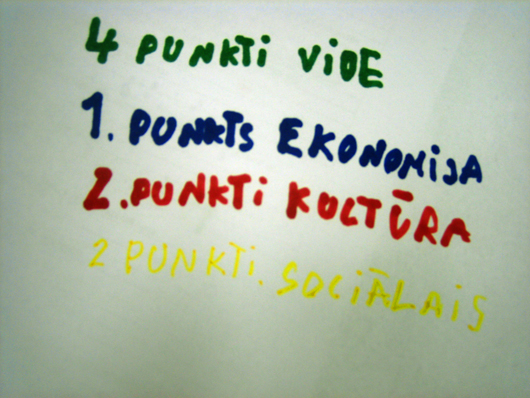 4 PUNKTI VIDE
1. PUNKTS EKONOMIJA
2. PUNKTI KULTŪRA
2 PUNKTI. SOCIĀLAIS